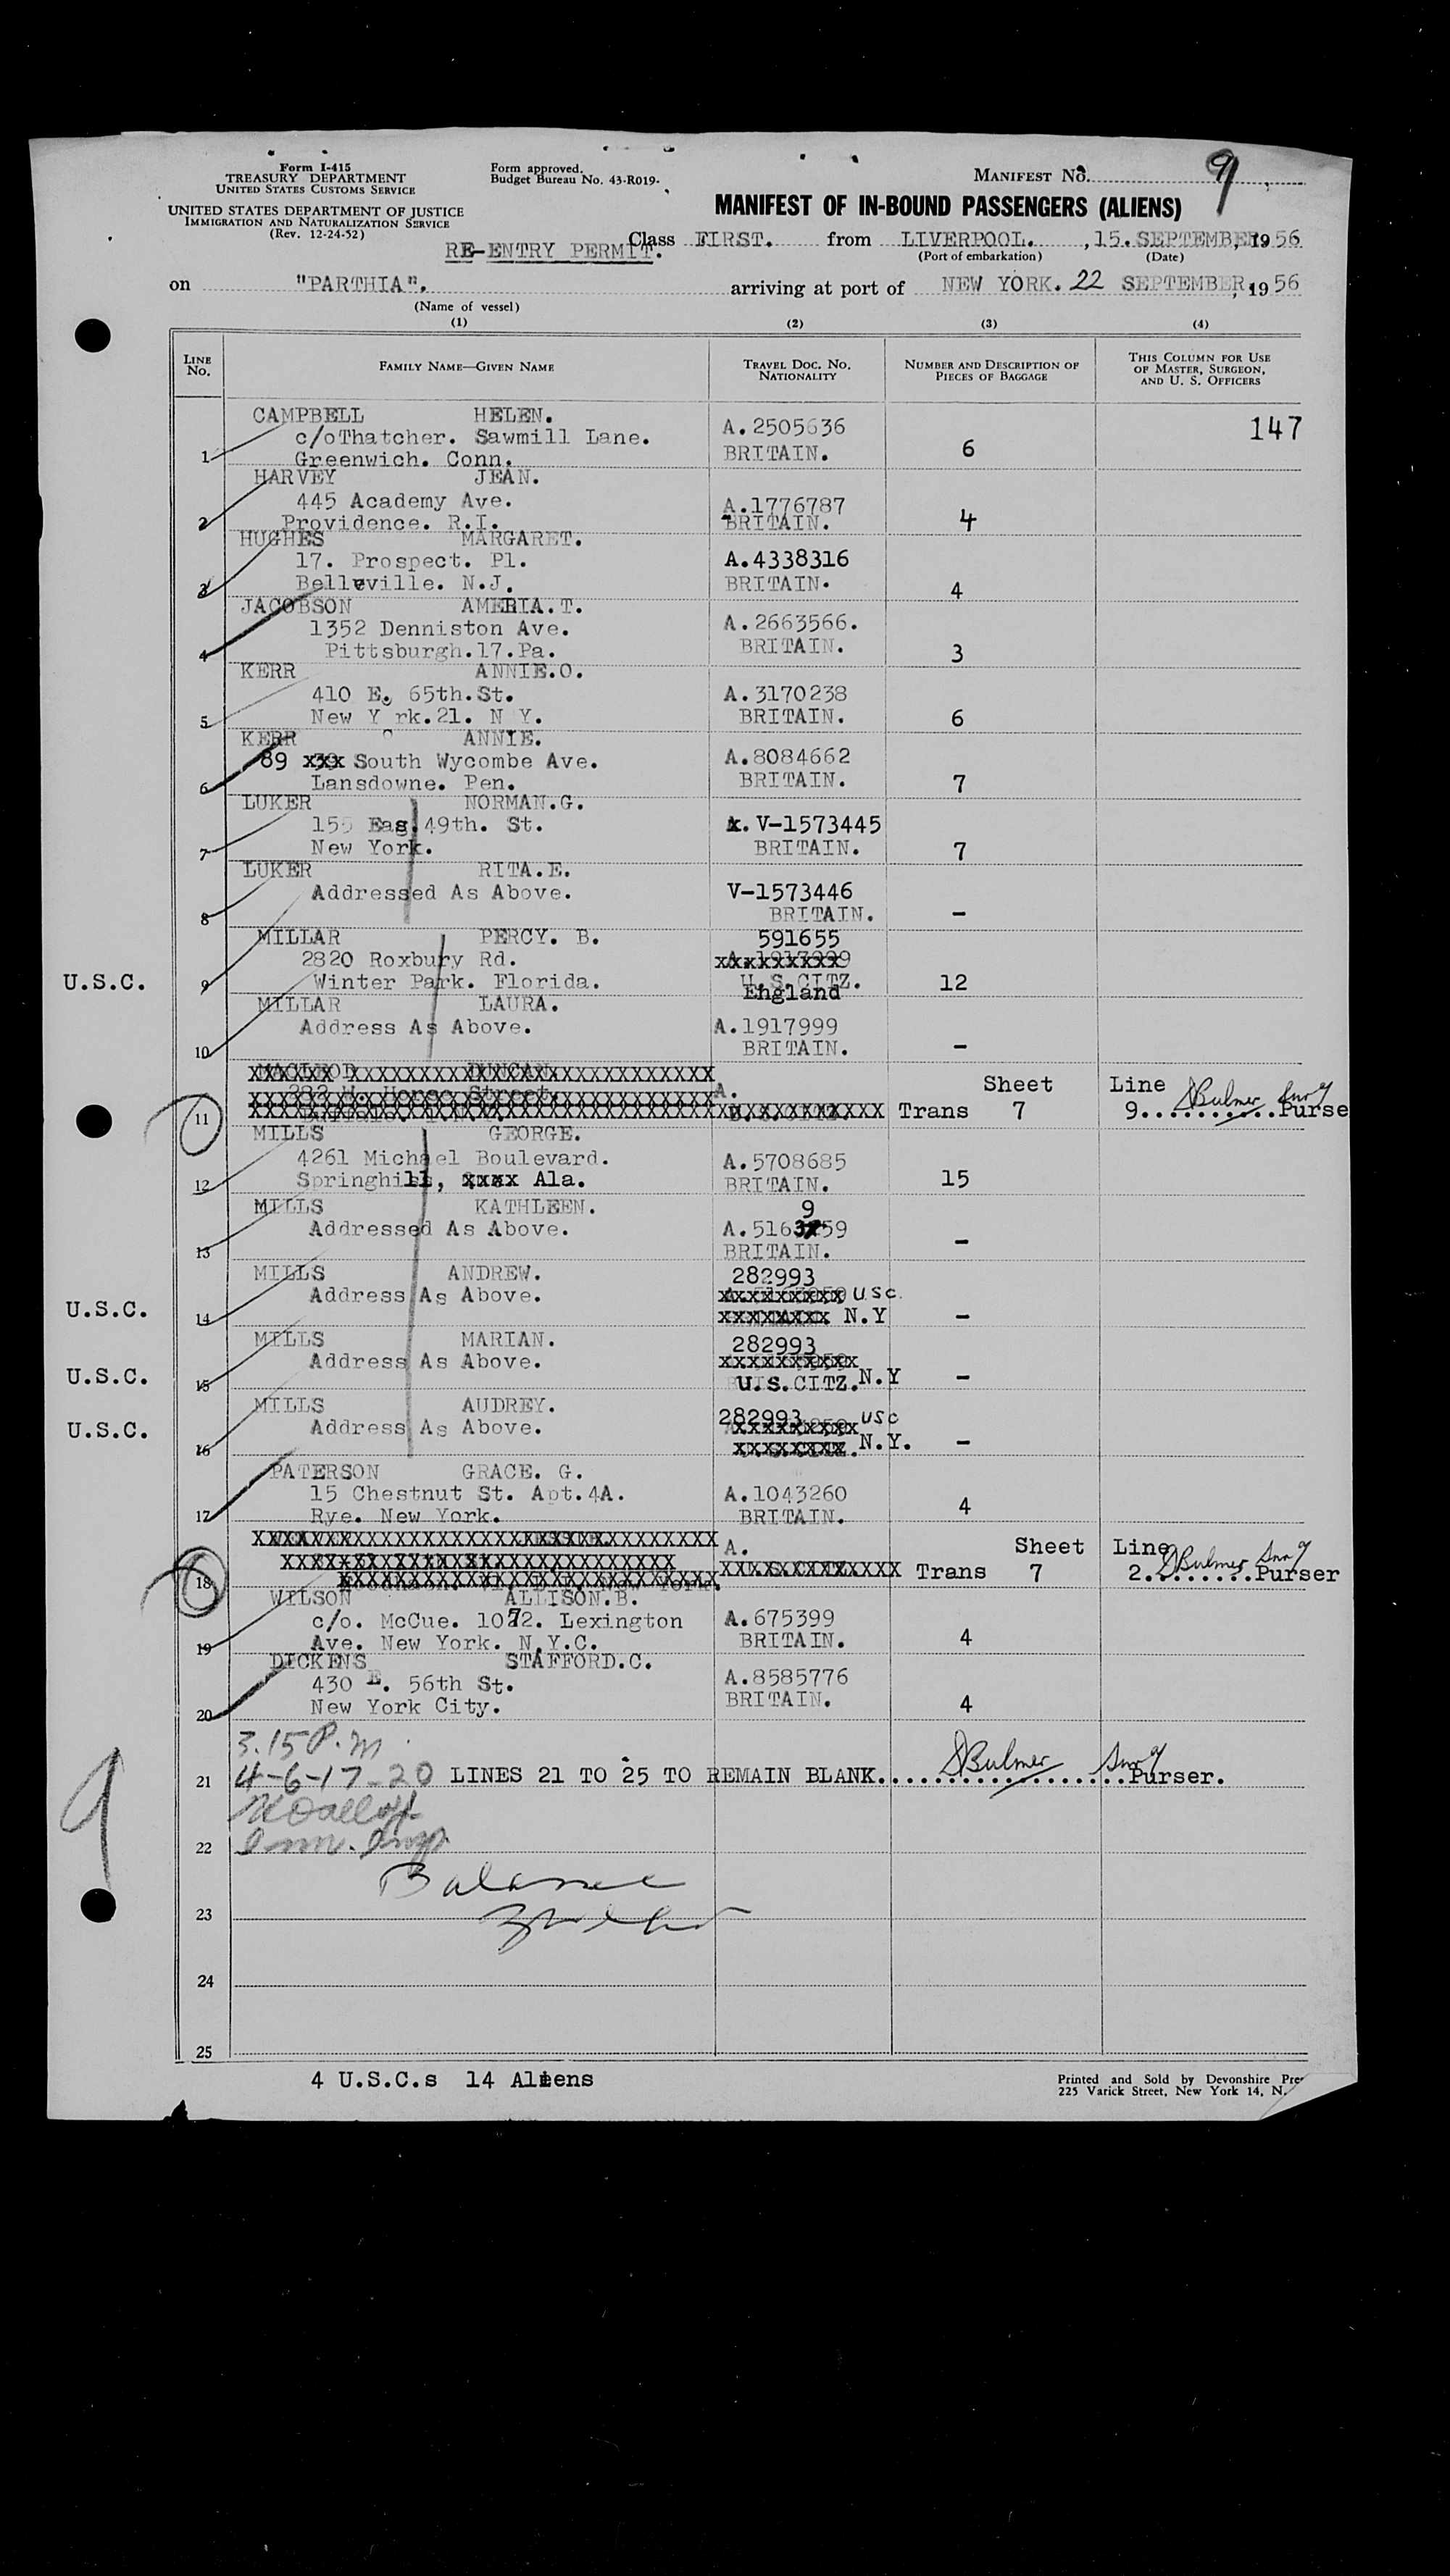 Form I-415
TREASURY DEPARTMENT
UNITED STATES CUSTOMS SERVICE
UNITED STATES DEPARTMENT OF JUSTICE
IMMIGRATION AND NATURALIZATION SERVICE
(Rev. 12-24-52)
Form approved.
Budget Bureau No. 43-R019-
MANIFEST NO. 9
MANIFEST OF IN-BOUND PASSENGERS (ALIENS)
RE-ENTRY PERMIT. Class FIRST. from LIVERPOOL. , 15. SEPTEMBER, 1956
(Port of embarkation) (Date)
on "PARTHIA". arriving at port of NEW YORK. 22 SEPTEMBER, 1956
(Name of vessel)
(1) (2) (3) (4)
LINE NO. FAMILY NAME—GIVEN NAME TRAVEL DOC. NO. NATIONALITY NUMBER AND DESCRIPTION OF PIECES OF BAGGAGE THIS COLUMN FOR USE OF MASTER, SURGEON, AND U. S. OFFICERS
147
CAMPBELL HELEN.
c/oThatcher. Sawmill Lane. A.2505636
1 Greenwich. Conn. BRITAIN. 6
HARVEY JEAN.
445 Academy Ave. A.1776787
2 Providence. R.I. BRITAIN. 4
HUGHES MARGARET.
17. Prospect. Pl. A.4338316
3 Belleville. N.J. BRITAIN. 4
JACOBSON AMERIA.T.
1352 Denniston Ave. A.2663566.
4 Pittsburgh.17.Pa. BRITAIN. 3
KERR ANNIE.O.
410 E. 65th.St. A.3170238
5 New Y rk.21. N Y. BRITAIN. 6
KERR ANNIE.
89 xxx South Wycombe Ave. A.8084662
6 Lansdowne. Pen. BRITAIN. 7
LUKER NORMAN.G.
155 Eas 49th. St. x. V-1573445
7 New York. BRITAIN. 7
LUKER RITA.E.
Addressed As Above. V-1573446
8 BRITAIN. -
MILLAR PERCY. B. 591655
2820 Roxbury Rd. xxxxxxxxx
U.S.C. 9 Winter Park. Florida. U.S.CITZ. 12
England
MILLAR LAURA.
Address As Above. A.1917999
10 BRITAIN. -
MACLEOD DUNCAN.
Sheet Line
A.
11 U.S.CITZ. Trans 7 9.......... DBulmer Purse
MILLS GEORGE.
4261 Michael Boulevard. A.5708685
12 Springhill, xxxx Ala. BRITAIN. 15
MILLS KATHLEEN. 9
Addressed As Above. A.5163759
13 BRITAIN. -
MILLS ANDREW. 282993
Address As Above. xxxxxxxxx USC.
U.S.C. 14 xxxxxxxx N.Y -
MILLS MARIAN. 282993
Address As Above. xxxxxxxxxx
U.S.C. 15 U.S.CITZ. N.Y -
MILLS AUDREY. 282993 USC
Address As Above. xxxxxxxxx
U.S.C. 16 xxxxxxxx N.Y. -
PATERSON GRACE. G.
15 Chestnut St. Apt.4A. A.1043260
17 Rye. New York. BRITAIN. 4
A. Sheet Line
18 U.S.CITZ Trans 7 2........ DBulmer Purser
WILSON ALLISON.B.
c/o. McCue. 1072. Lexington A.675399
19 Ave. New York. N.Y.C. BRITAIN. 4
DICKENS STAFFORD.C.
430 E. 56th St. A.8585776
20 New York City. BRITAIN. 4
3.15 P.M.
21 4-6-17-20 LINES 21 TO 25 TO REMAIN BLANK. DBulmer Purser.
9
22 Imm. Insp.
Balance
23
24
25
4 U.S.C.s 14 Aliens
Printed and Sold by Devonshire Pre
225 Varick Street, New York 14, N.